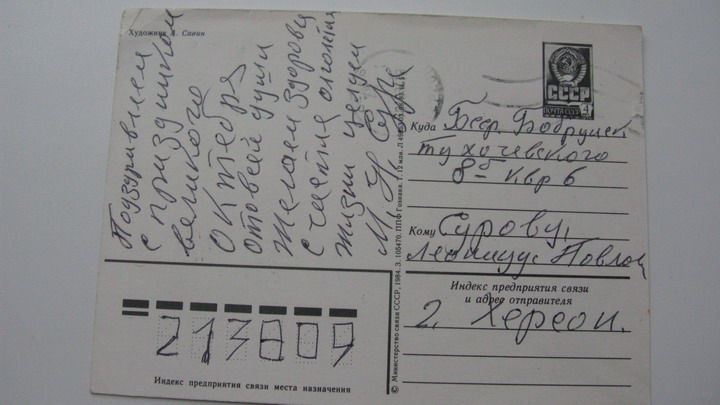 Художник А. Савин
Поздравляем
с праздником
великого
Октебря
отовсей души
Желаем Здоровя
счастия
жизни целуем
СССР
ПОЧТА
4
Куда Беср. Бобруйск
тухочевского
кв 6
Кому Сурову,
Леониду Повлов
Индекс предприятия связи
и адрес отправителя
г. Херсон.
213809
Индекс предприятия связи места назначения
© Министерство связи СССР, 1984. З. 105470. ППФ Гознака.